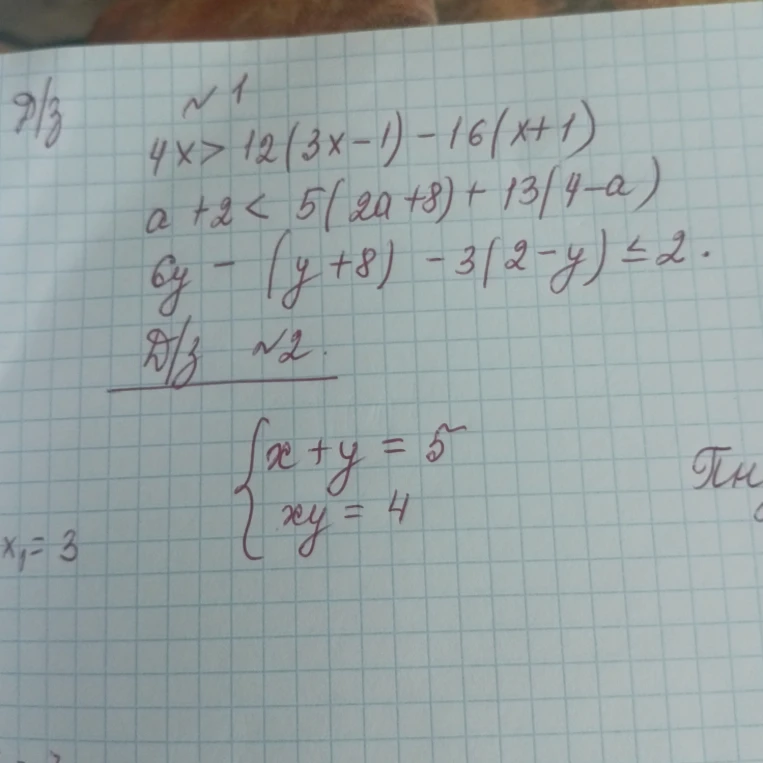 Д/з №1
4x > 12(3x-1) - 16(x+1)
a + 2 < 5(2a+8) + 13(4-a)
6y - (y+8) - 3(2-y) ≤ 2.
Д/з №2.
{ x + y = 5
xy = 4
x₁ = 3